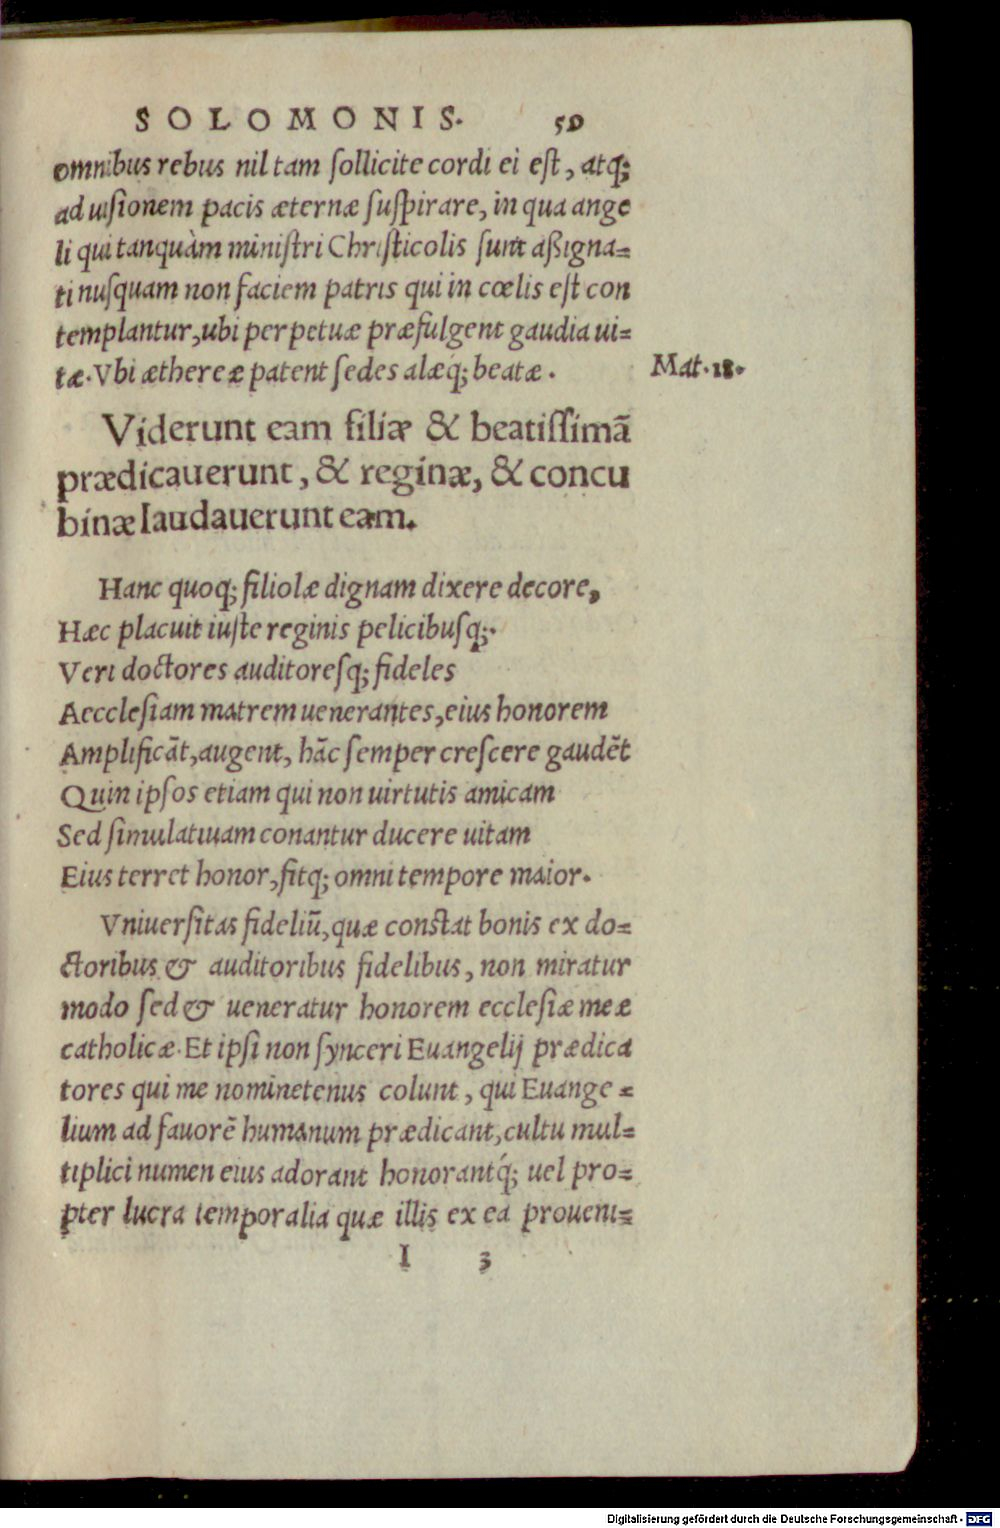 SOLOMONIS. 59
omnibus rebus nil tam ſollicite cordi ei eſt, atq;
ad uiſionem pacis æternæ ſuſpirare, in qua ange
li qui tanquàm miniſtri Chriſticolis ſunt aßigna=
ti nuſquam non faciem patris qui in cœlis eſt con
templantur, ubi perpetuæ præfulgent gaudia ui=
tæ. Vbi æthereæ patent ſedes alæq́; beatæ.
Mat. 18.
Viderunt eam filiæ & beatiſſimā
prædicauerunt, & reginæ, & concu
binæ laudauerunt eam.
Hanc quoq; filiolæ dignam dixere decore,
Hæc placuit iuſte reginis pelicibuſq;.
Veri doctores auditoreſq; fideles
Aecclesiam matrem uenerantes, eius honorem
Amplificāt, augent, hāc ſemper creſcere gaudēt
Quin ipſos etiam qui non uirtutis amicam
Sed ſimulatiuam conantur ducere uitam
Eius terret honor, fitq; omni tempore maior.
Vniuerſitas fideliū, quæ conſtat bonis ex do=
ctoribus & auditoribus fidelibus, non miratur
modo ſed & ueneratur honorem eccleſiæ meæ
catholicæ. Et ipſi non ſynceri Euangelij prædica
tores qui me nominetenus colunt, qui Euange=
lium ad fauorē humanum prædicant, cultu mul=
tiplici numen eius adorant honorantq́; uel pro=
pter lucra temporalia quæ illis ex ea proueni=
I 3
Digitalisierung gefördert durch die Deutsche Forschungsgemeinschaft - DFG